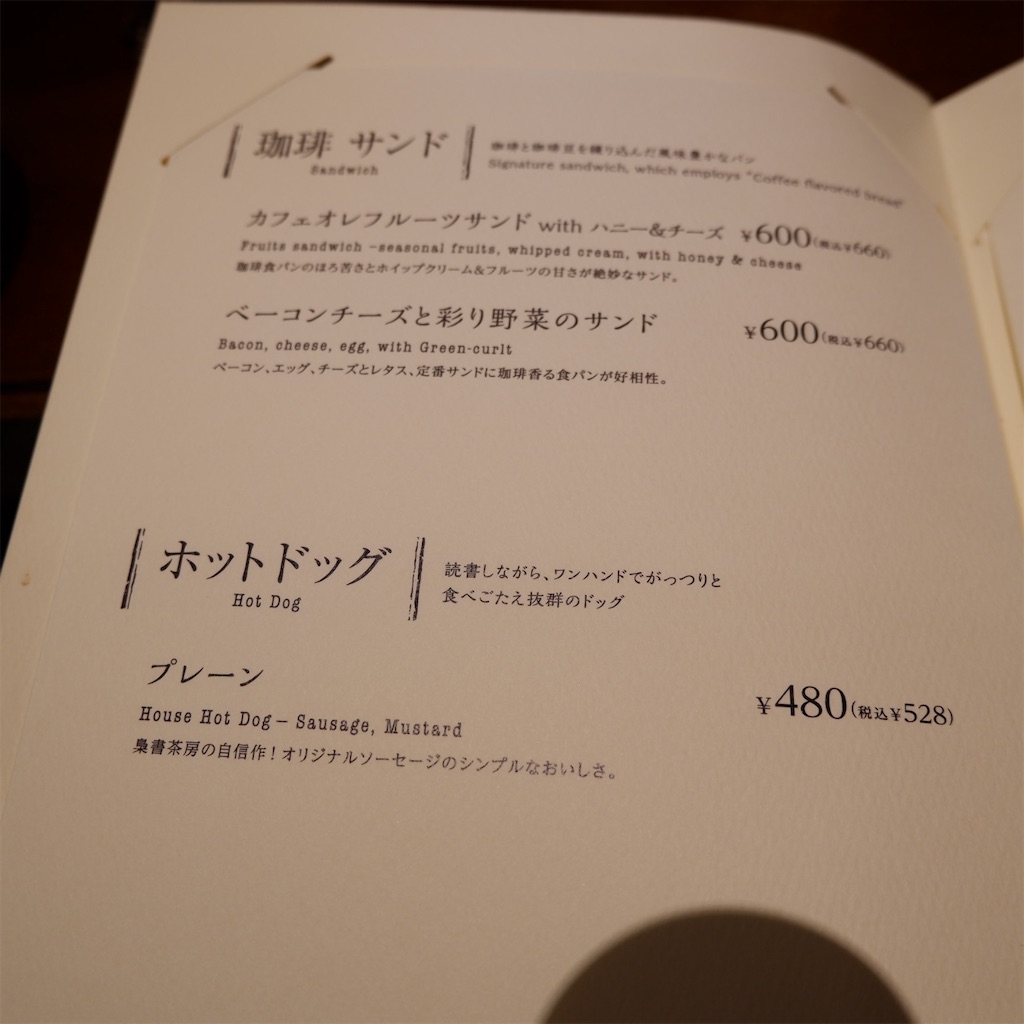 珈琲 サンド
Sandwich
珈琲と珈琲豆を練り込んだ風味豊かなパン
Signature sandwich, which employs "Coffee flavored bread"
カフェオレフルーツサンド with ハニー&チーズ ¥600(税込¥660)
Fruits sandwich –seasonal fruits, whipped cream, with honey & cheese
珈琲食パンのほろ苦さとホイップクリーム&フルーツの甘さが絶妙なサンド。
ベーコンチーズと彩り野菜のサンド ¥600(税込¥660)
Bacon, cheese, egg, with Green-curlt
ベーコン、エッグ、チーズとレタス、定番サンドに珈琲香る食パンが好相性。
ホットドッグ
Hot Dog
読書しながら、ワンハンドでがっつりと
食べごたえ抜群のドッグ
プレーン ¥480(税込¥528)
House Hot Dog – Sausage, Mustard
梟書茶房の自信作！オリジナルソーセージのシンプルなおいしさ。